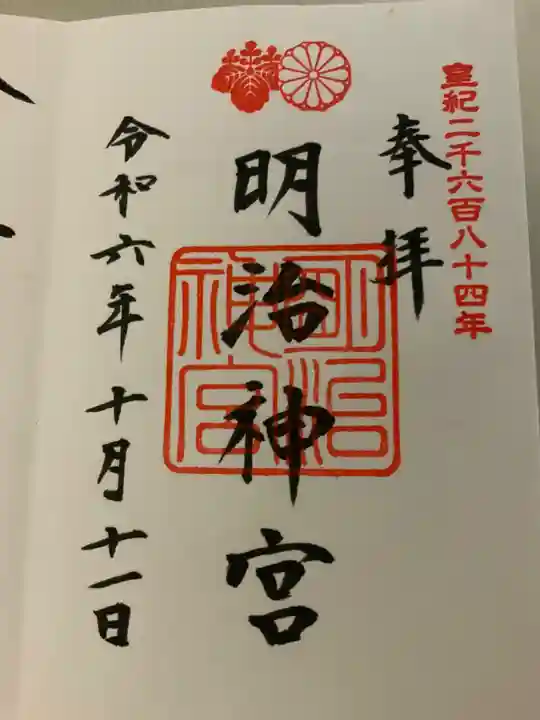 皇紀二千六百八十四年
奉拝
明治神宮
明治神宮
令和六年十月十一日